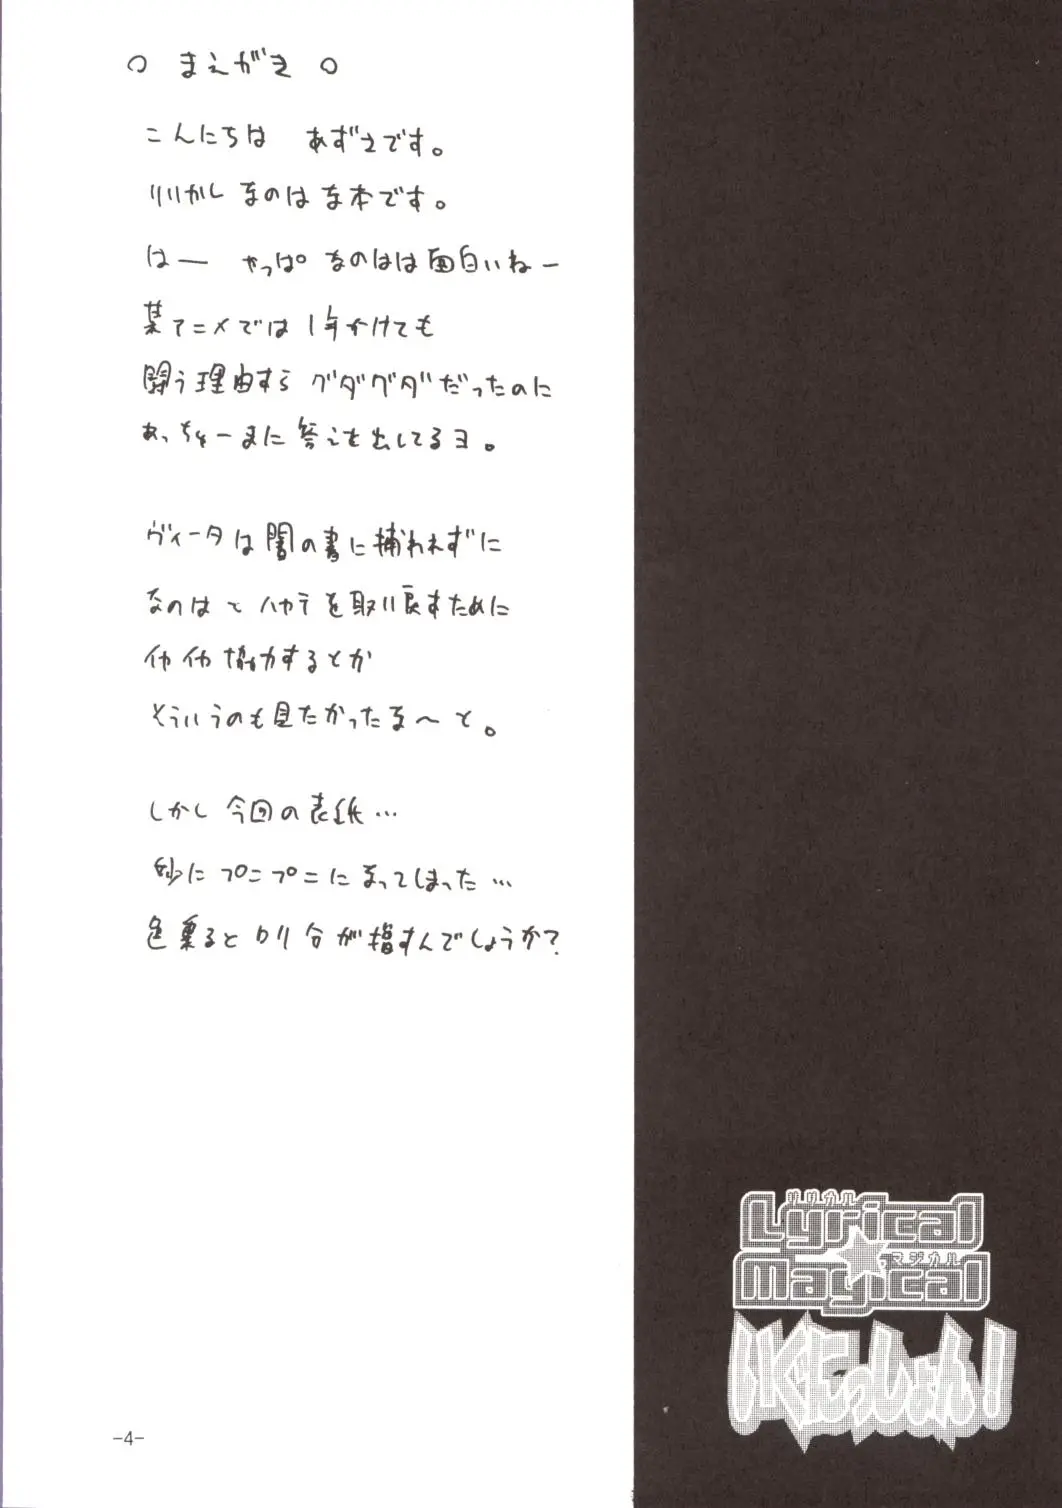 ○ まえがき ○
こんにちは あずさです。
リリカル なのはな本です。
はー やっぱ なのはは面白いねー
某アニメでは 1年かけても
闘う理由すら グダグダだったのに
あっちゅーまに 答えを出してるヨ。
ヴィータは闇の書に捕われずに
なのはと ハヤテを取り戻すために
イヤイヤ協力するとか
そういうのも見たかったな〜と。
しかし 今回の表紙…
妙に プニプニになってしまった…
色業ると ロリ分が指すんでしょうか?
リリカル
Lyrical
マジカル
Magical
-4-